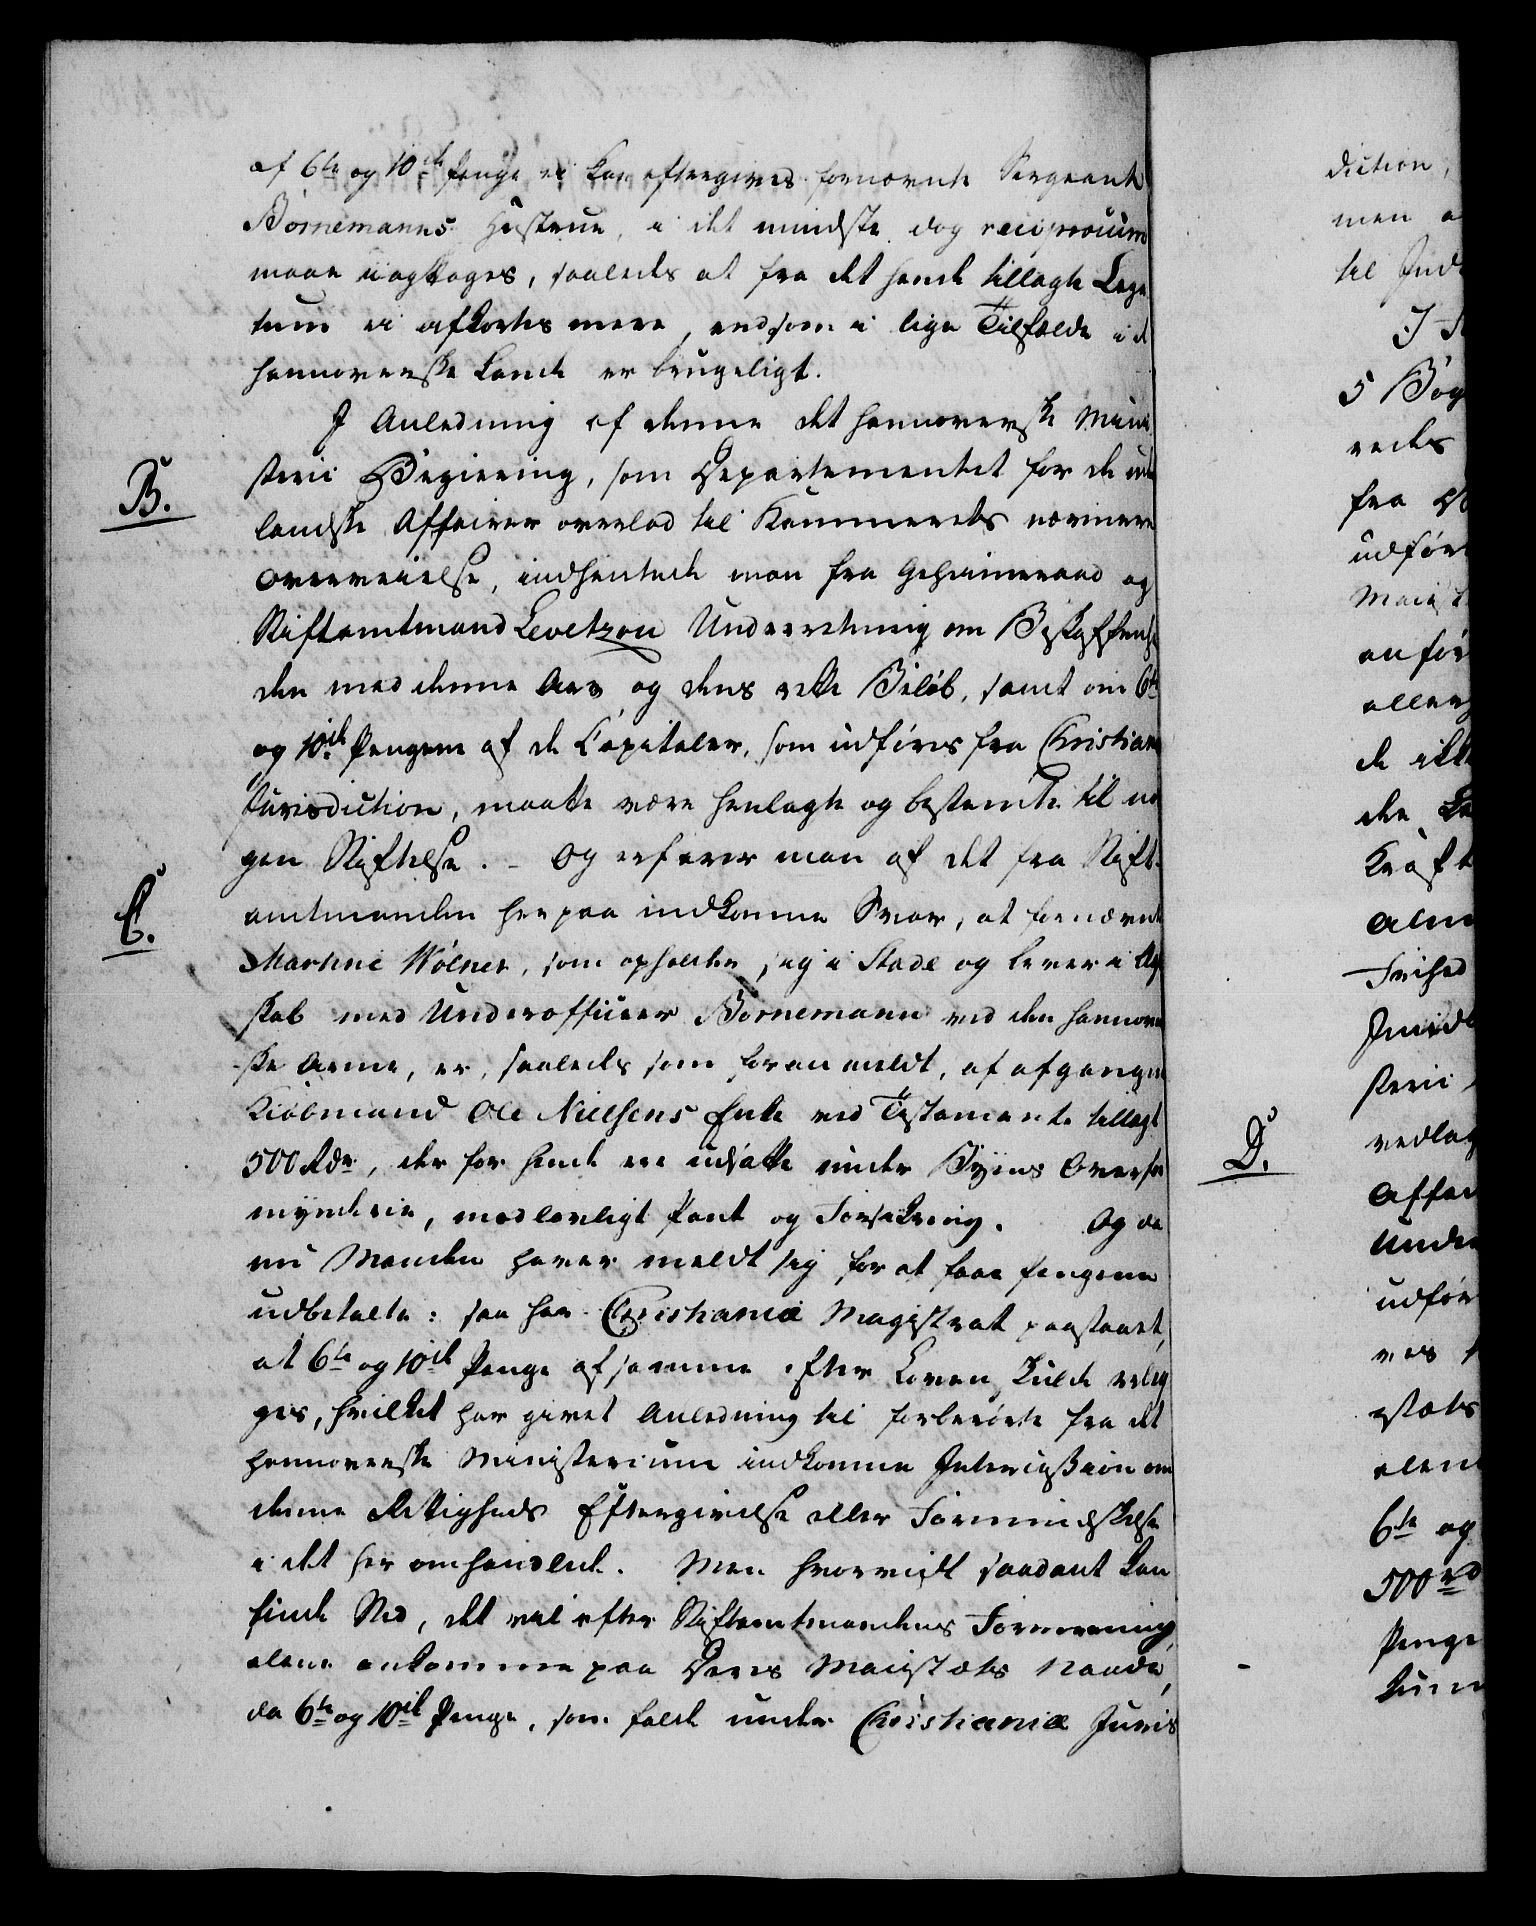 af 6te og 10de Penge ei kan eftergives fornævnte Sergeant
Børnemanns Hustrue, i det mindste dog reciprocum
maae iagttages, saaledes at fra det hende tillagte Lega
tum ei afkortes mere, end som i lige Tilfælde i de
hannoverske Lande er brugeligt.
I Anledning af denne det hannoverske Mini
B. sterii Begiering, som Departementet for de uden
landske Affairer overlod til Kammerets nærmere
Overveielse, indhentede man fra Geheimeraad og
Stiftamtmand Levetzou Underretning om Beskaffenhe
den med denne Arv og dens rette Beløb, samt om 6te
og 10de Pengene af de Capitaler, som udføres fra Christiania
Jurisdiction, maatte være henlagte og bestemte til no
gen Stiftelse. – Og erfarer man af det fra Stift-
C. amtmanden herpaa indkomne Svar, at fornævnte
Martine Wölner, som opholder sig i Stade og lever i Ægte
skab med Underofficeer Børnemann ved den hannover
ske Armee, er, saaledes som foranmeldt, af afgangne
Kiøbmand Ole Nielsens Enke ved Testamente tillagt
500 Rdr, der for hende ere udsatte under Byens Overfor
mynderie, mod lovligt Pant og Forsikring. Og da
nu Manden haver meldt sig for at faae Pengene
udbetalte: saa har Christiania Magistrat paastaaet,
at 6te og 10de Penge af samme efter Loven skulde erlæg
ges, hvilket har givet Anledning til forberørte fra det
hannoverske Ministerium indkomne Intercession om
denne Rettigheds Eftergivelse eller Formindskelse
i det her omhandlede. Men hvorvidt saadant kan
finde Sted, det vil efter Stiftamtmandens Formening
alene ankomme paa Deres Majestæts Naade,
da 6te og 10de Penge, som falde under Christianiæ Juris
diction,
men
til
5
fra
udfør
anfør
de
den
Kraft
Frihed
sterii
D.
vedlag
Under
udfør
stæts
6te og
500 rd
Penge